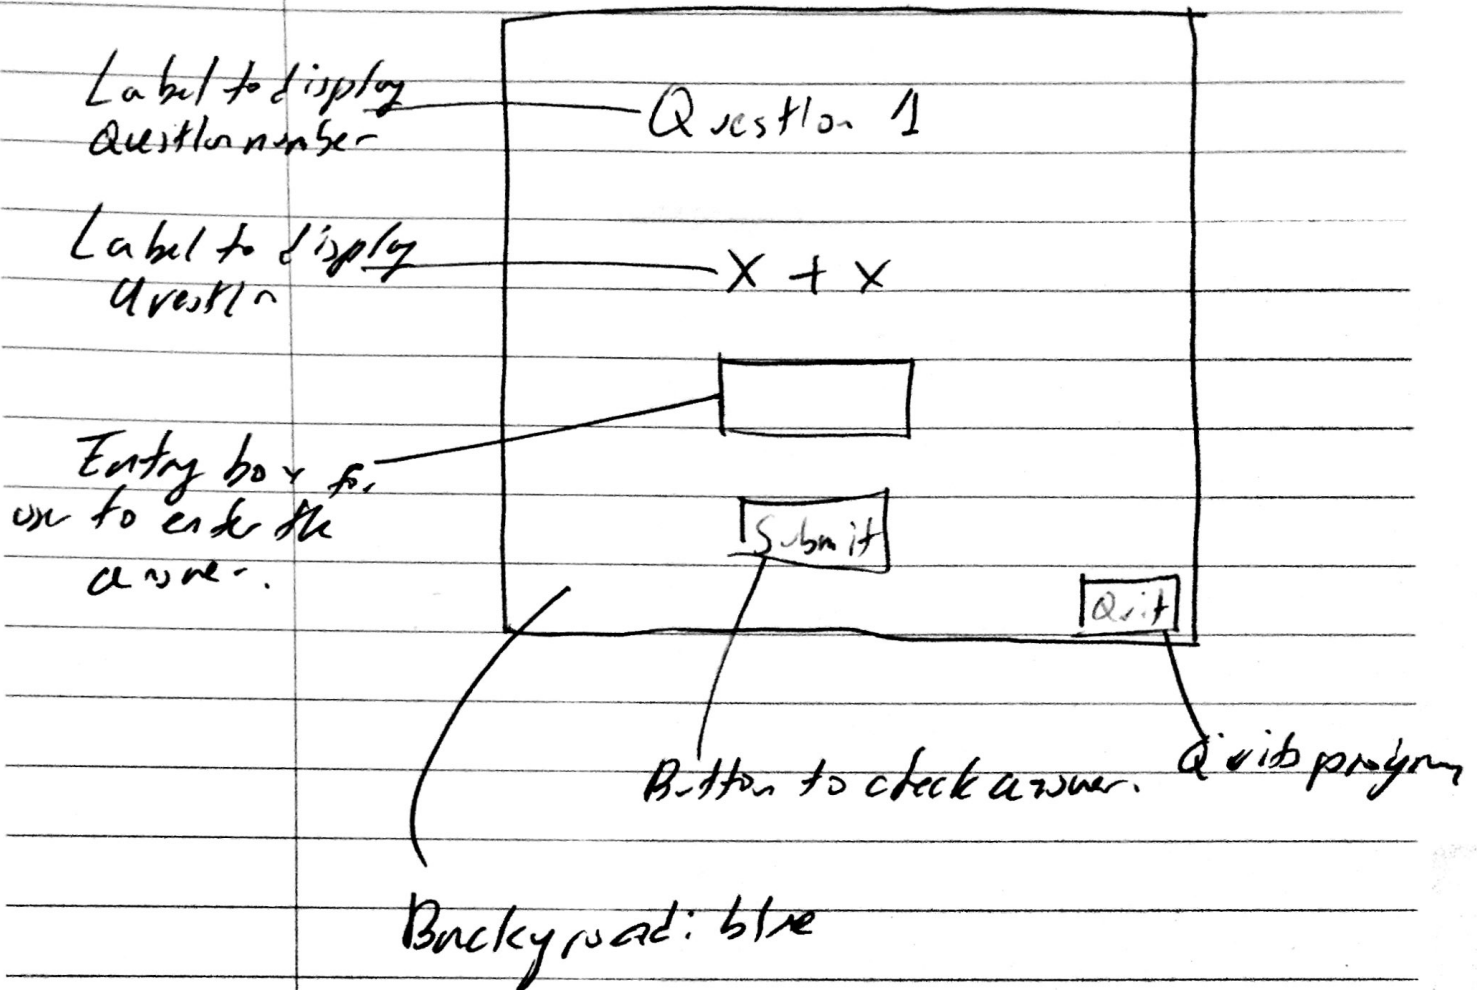 Label to display
Question number
Question 1
Label to display
Question
X + X
Entry box for
user to enter the
answer.
Submit
Quit
Button to check answer.
Quits program
Background: blue